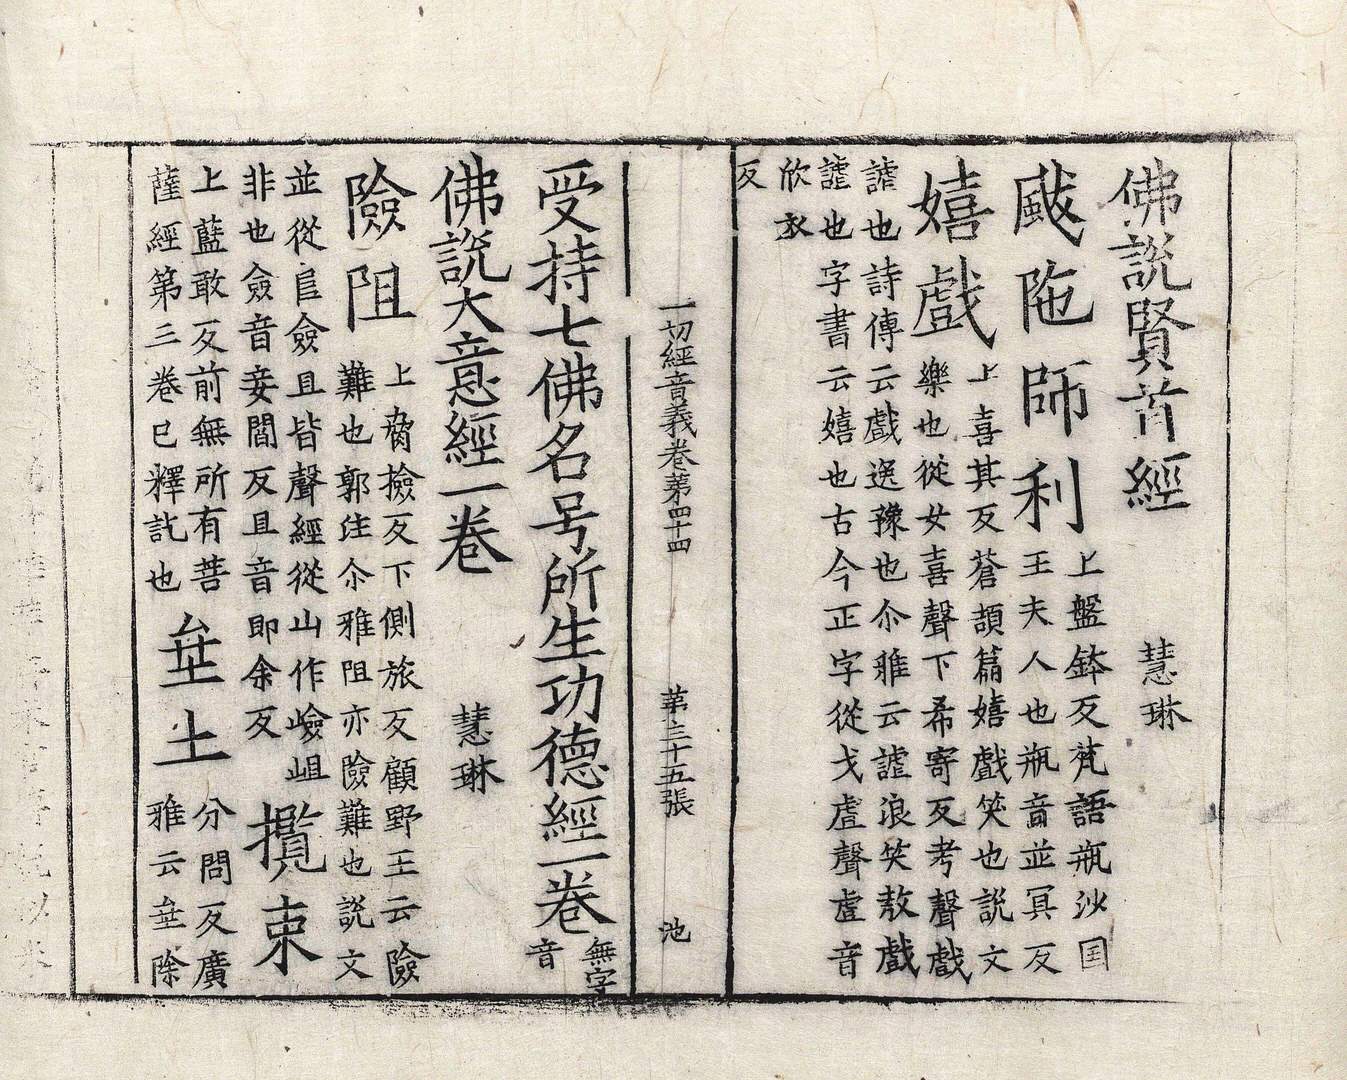 佛說賢首經　慧琳
颰陁師利
上盤鉢反梵語瓶沙国
王夫人也瓶音並冥反
嬉戲
上喜其反蒼頡篇嬉戲笑也說文
樂也從女喜聲下希寄反考聲戲
謔也詩傳云戲逸豫也尒雅云謔浪笑敖戲
謔也字書云嬉也古今正字從戈䖒聲䖒音
欣衣
反
一切經音義卷第四十四　第三十五張　池
受持七佛名号所生功德經一卷
無字
音
佛說大意經一卷　慧琳
險阻
上脅撿反下側旅反顧野王云險
難也郭注尒雅阻亦險難也說文
並從𨸏僉且皆聲經從山作嶮岨
非也僉音妾閻反且音即余反
攬束
上藍敢反前無所有菩
薩經第三卷已釋訖也
坌土
分問反廣
雅云坌除